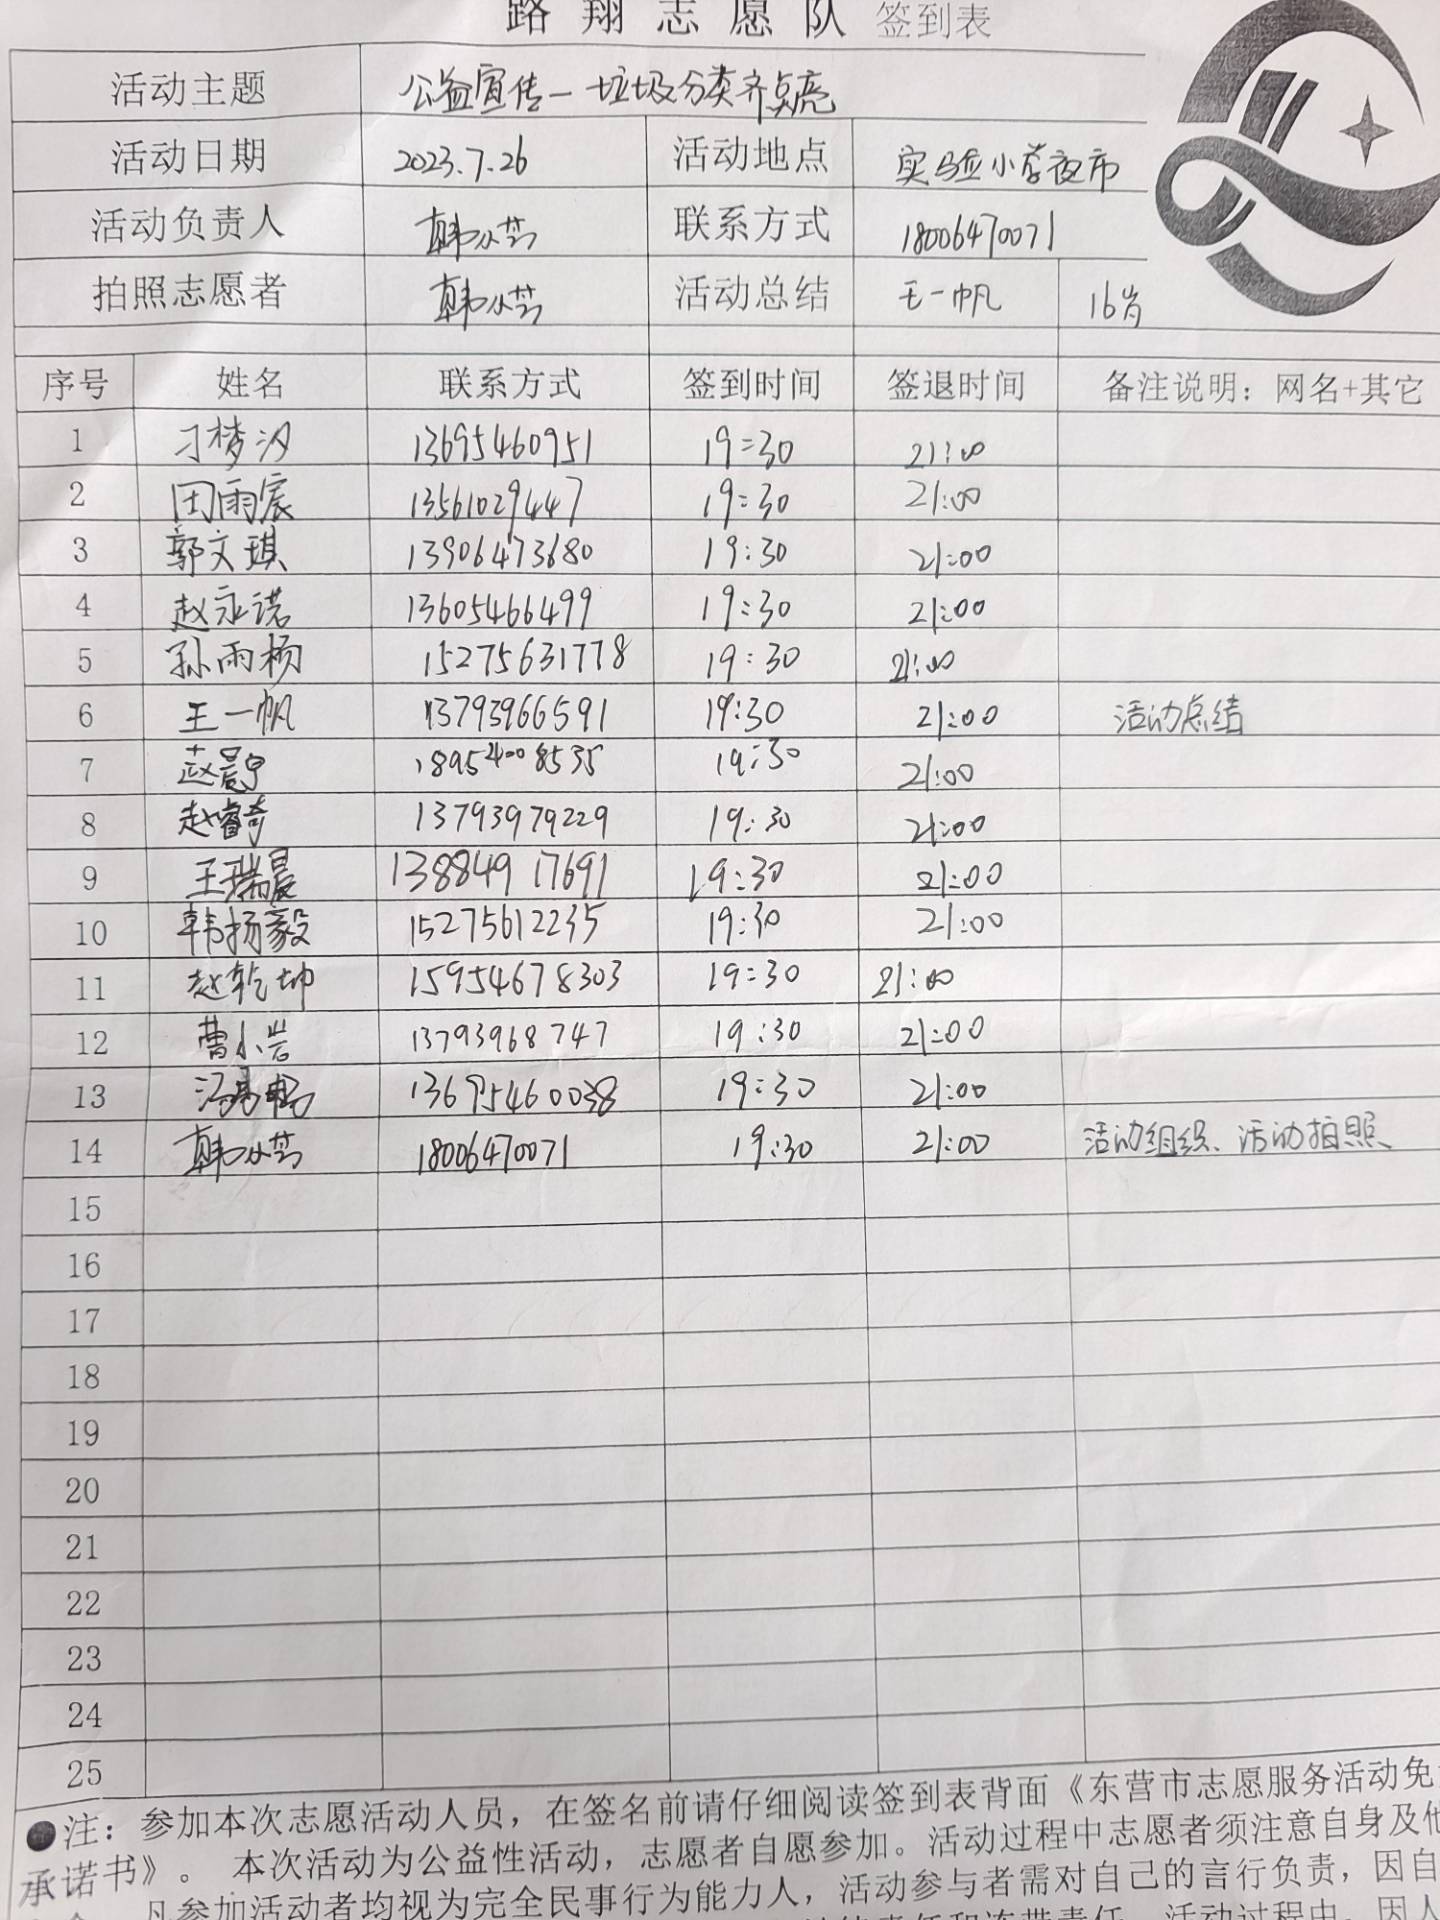 路翔志愿队 签到表
活动主题 公益宣传—垃圾分类齐点亮
活动日期 2023.7.26 活动地点 实验小学夜市
活动负责人 韩从芸 联系方式 18006470071
拍照志愿者 韩从芸 活动总结 王一帆 16岁
序号 姓名 联系方式 签到时间 签退时间 备注说明：网名+其它
1 刁梦汐 13695460951 19:30 21:00
2 田雨宸 13561029447 19:30 21:00
3 郭文琪 13906473680 19:30 21:00
4 赵永诺 13605466499 19:30 21:00
5 孙雨杨 15275631778 19:30 21:00
6 王一帆 13793966591 19:30 21:00 活动总结
7 赵晨宁 18954008535 19:30 21:00
8 赵睿奇 13793979229 19:30 21:00
9 王瑞晨 13884917691 19:30 21:00
10 韩扬毅 15275612235 19:30 21:00
11 赵乾坤 15954678303 19:30 21:00
12 曹小岩 13793968747 19:30 21:00
13 13695460038 19:30 21:00
14 韩从芸 18006470071 19:30 21:00 活动组织、活动拍照
15
16
17
18
19
20
21
22
23
24
25
●注：参加本次志愿活动人员，在签名前请仔细阅读签到表背面《东营市志愿服务活动免
承诺书》。 本次活动为公益性活动，志愿者自愿参加。活动过程中志愿者须注意自身及他
凡参加活动者均视为完全民事行为能力人，活动参与者需对自己的言行负责，因自